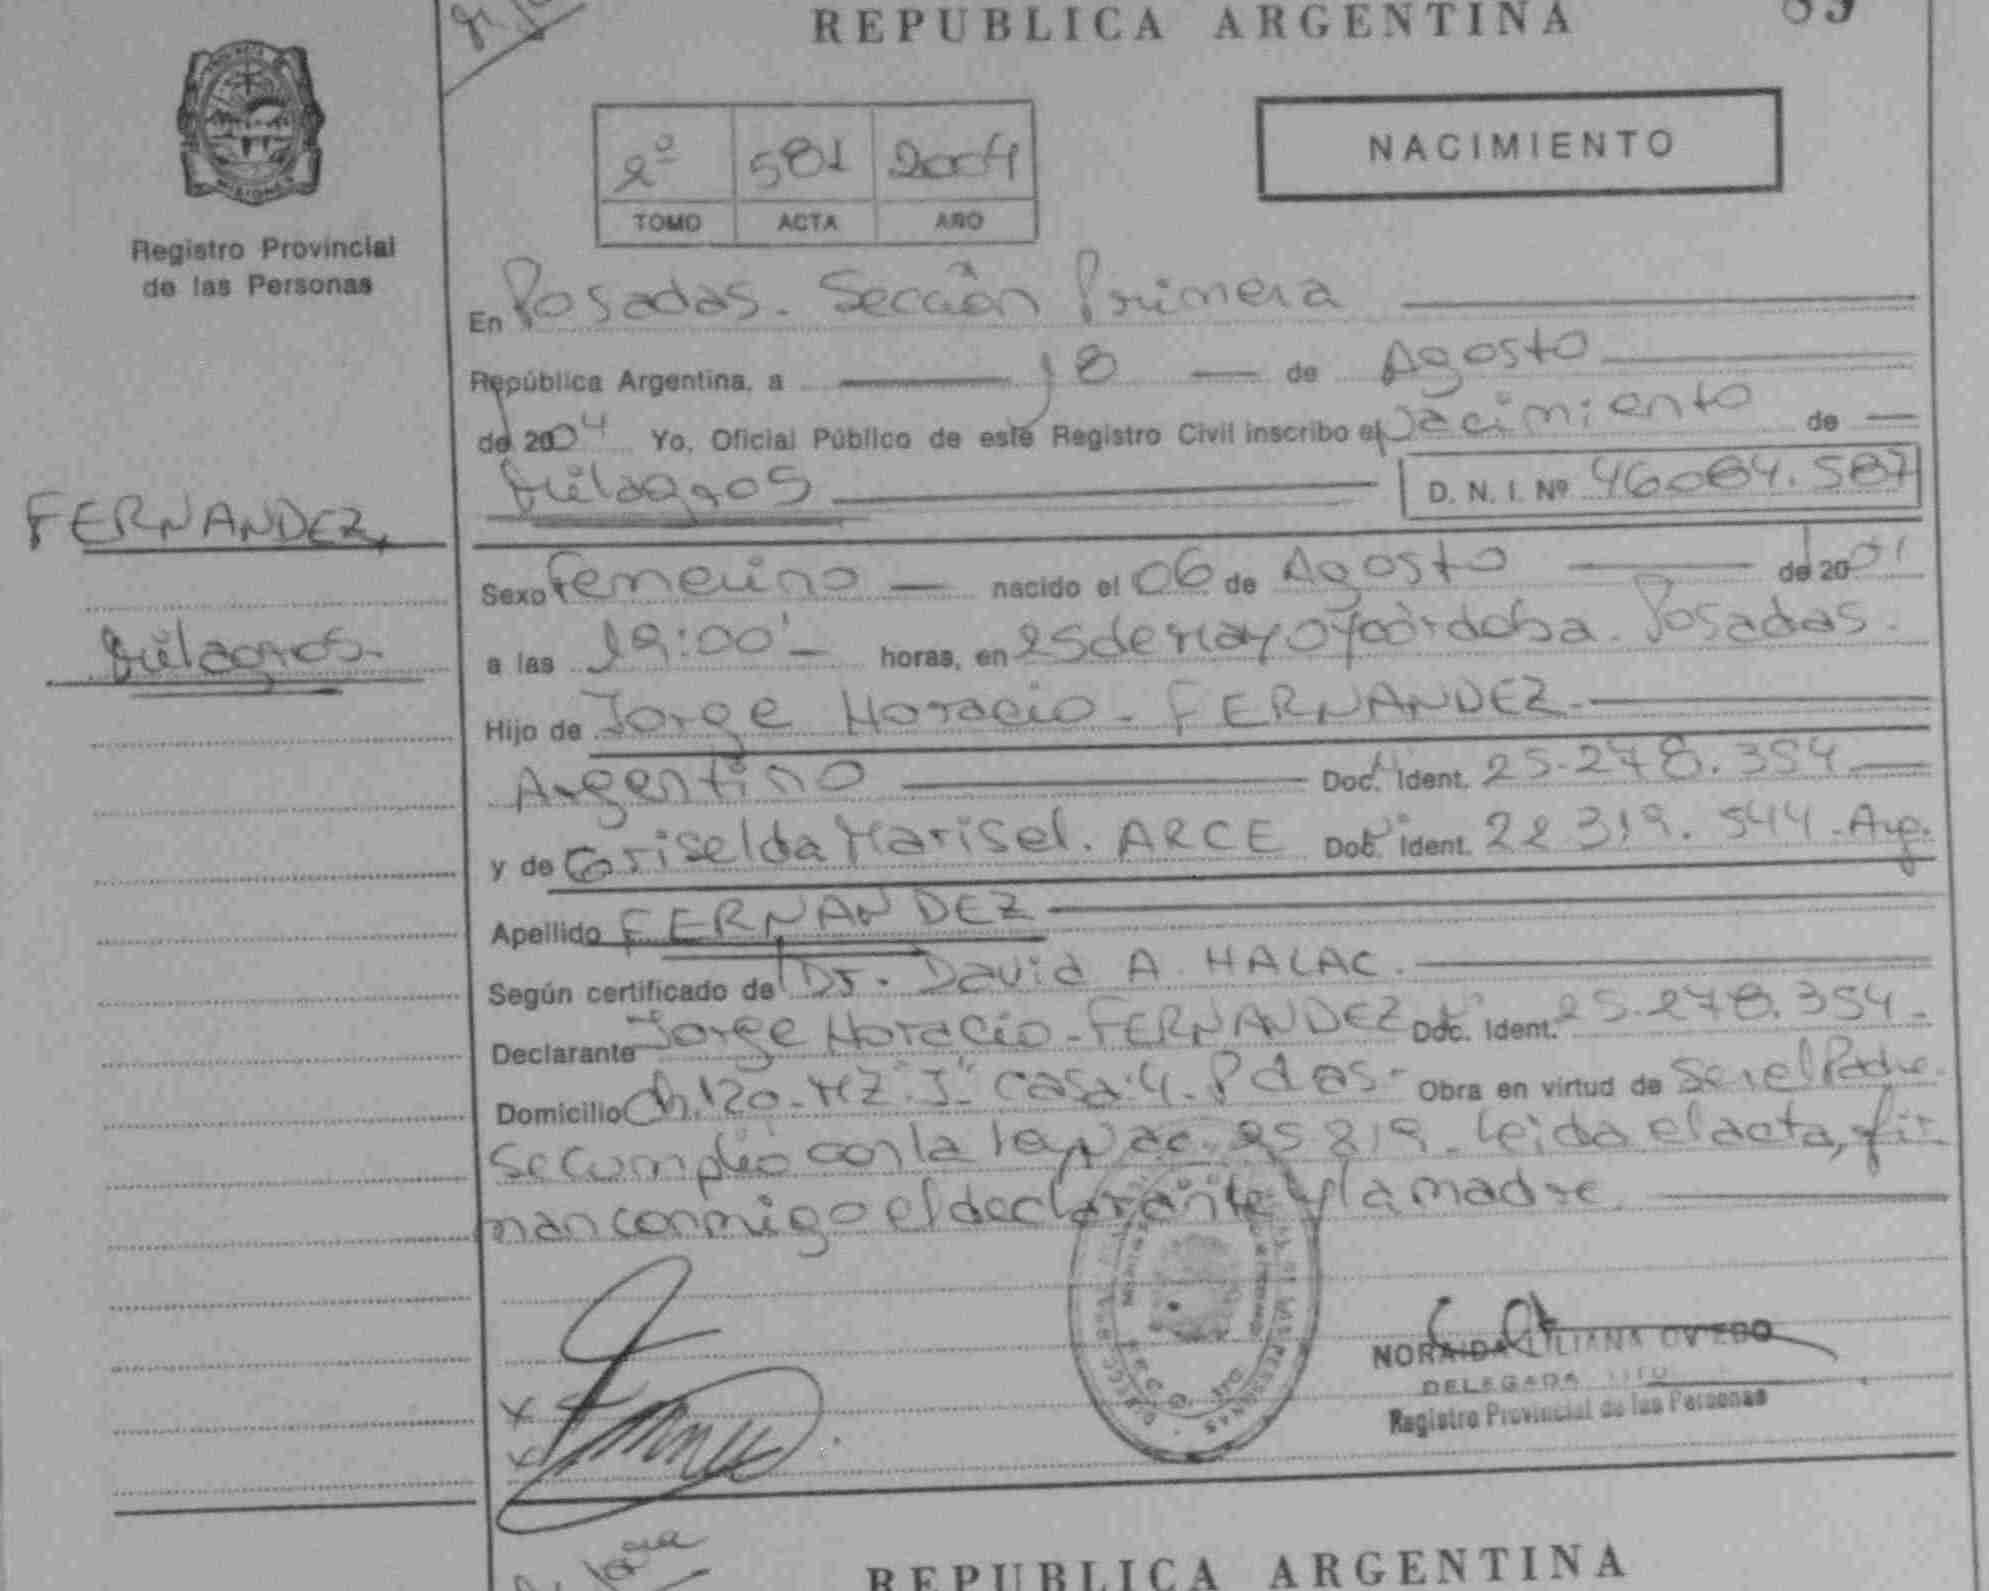 REPUBLICA ARGENTINA
89
Registro Provincial
de las Personas
2º 581 2004
TOMO ACTA AÑO
NACIMIENTO
En Posadas. Sección Primera
República Argentina, a 18 de Agosto
de 2004 Yo, Oficial Público de este Registro Civil inscribo el Nacimiento de
Milagros D. N. I. Nº 46084.587
FERNANDEZ,
Milagros.
Sexo Femenino nacido el 06 de Agosto de 20
a las 19:00 horas, en 25 de Mayo y Córdoba. Posadas.
Hijo de Jorge Horacio - FERNANDEZ.
Argentino Doc. Ident. 25.278.354
y de Griselda Marisel. ARCE Doc. Ident. 22319.544 - Arg.
Apellido FERNANDEZ
Según certificado de Dr. David A. HALAC.
Declarante Jorge Horacio - FERNANDEZ Doc. Ident. 25.278.354.
Domicilio Ch. 120 - MZ "J" Casa: 4. Pdas. Obra en virtud de Ser el Padre.
Se cumplió con la ley Nac. 25819. Leida el acta, fir
man conmigo el declarante y la madre.
NORAIDA LILIANA OVIEDO
DELEGADA
Registro Provincial de las Personas
REPUBLICA ARGENTINA